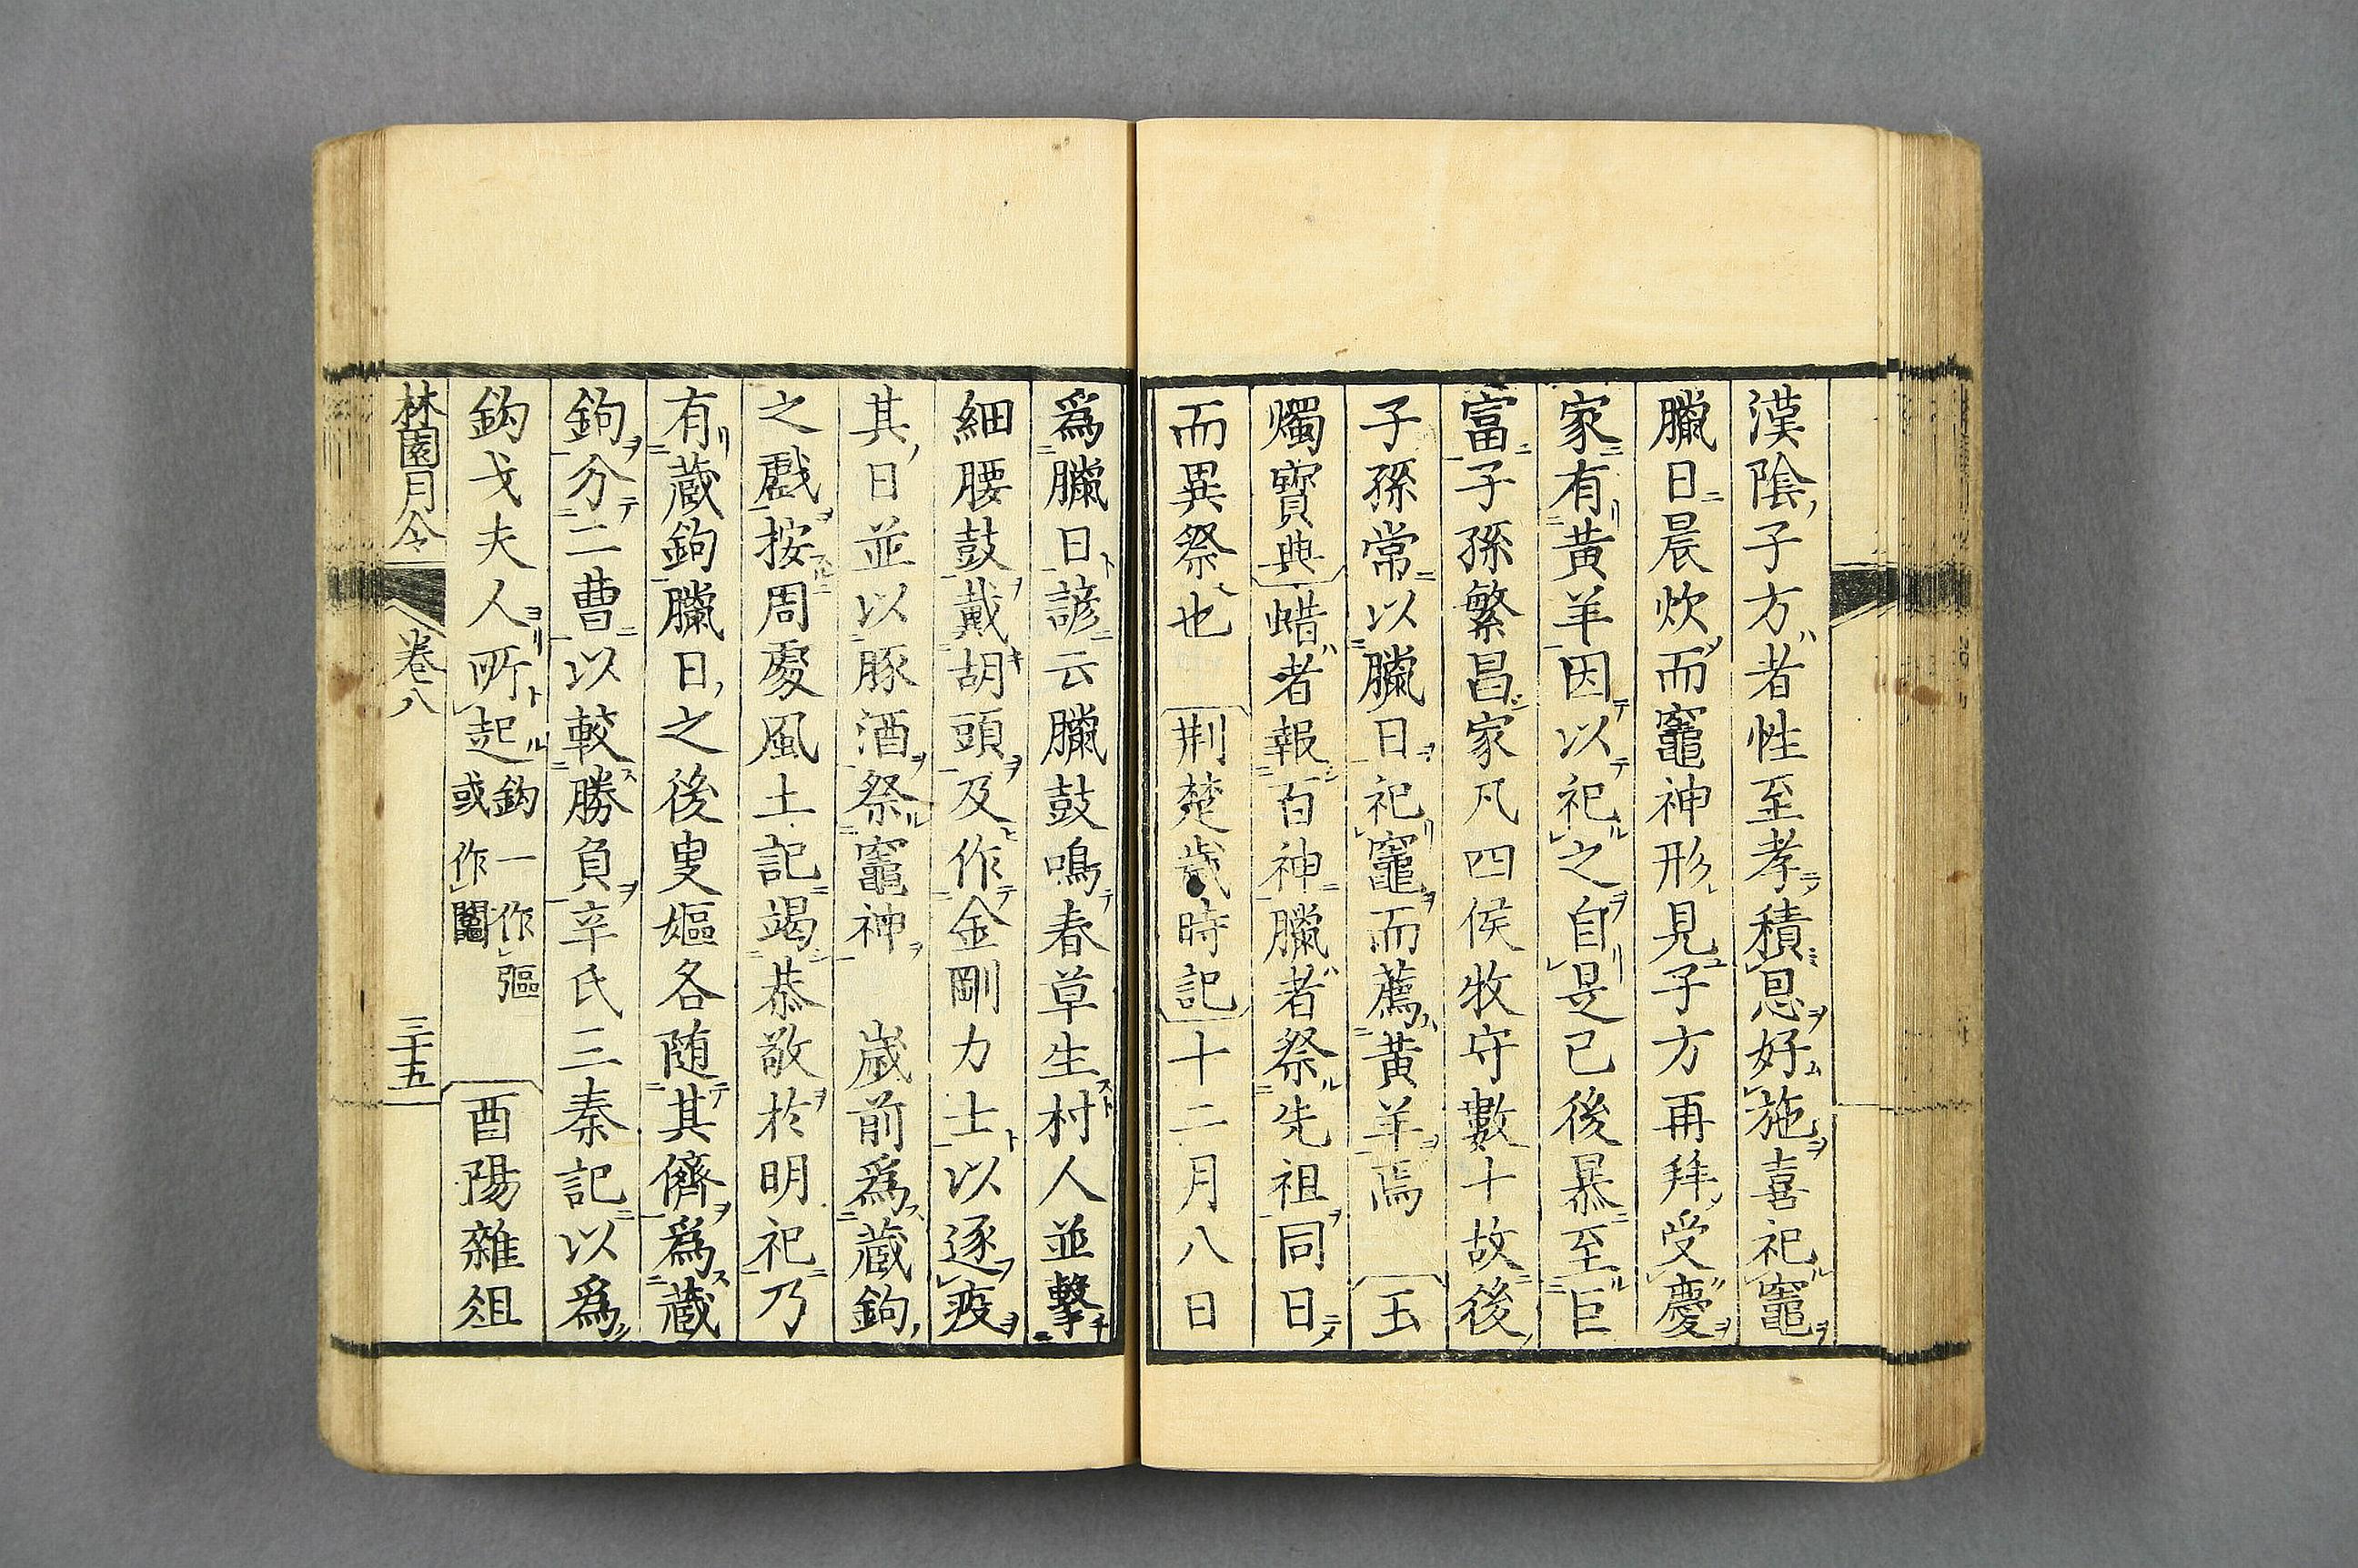 漢陰子方者性至孝積恩好施喜祀竈
臘日晨炊而竈神形見子方再拜受慶
家有黃羊因以祀之自是已後暴至巨
富子孫繁昌家凡四侯牧守數十故後
子孫常以臘日祀竈而薦黃羊焉 玉
燭寶典蜡者報百神臘者祭先祖同日
而異祭也 荆楚歳時記十二月八日
爲臘日諺云臘鼓鳴春草生村人並擊
細腰鼓戴胡頭及作金剛力士以逐疫
其日並以豚酒祭竈神 歲前爲藏鉤
之戲按周處風土記竭恭敬於明祀乃
有藏鉤臘日之後叟嫗各随其儕爲藏
鉤分二曹以較勝負辛氏三秦記以爲
鈎弋夫人所起鈎一作彄或作䦰 酉陽雜俎
林園月令 卷八 三十五